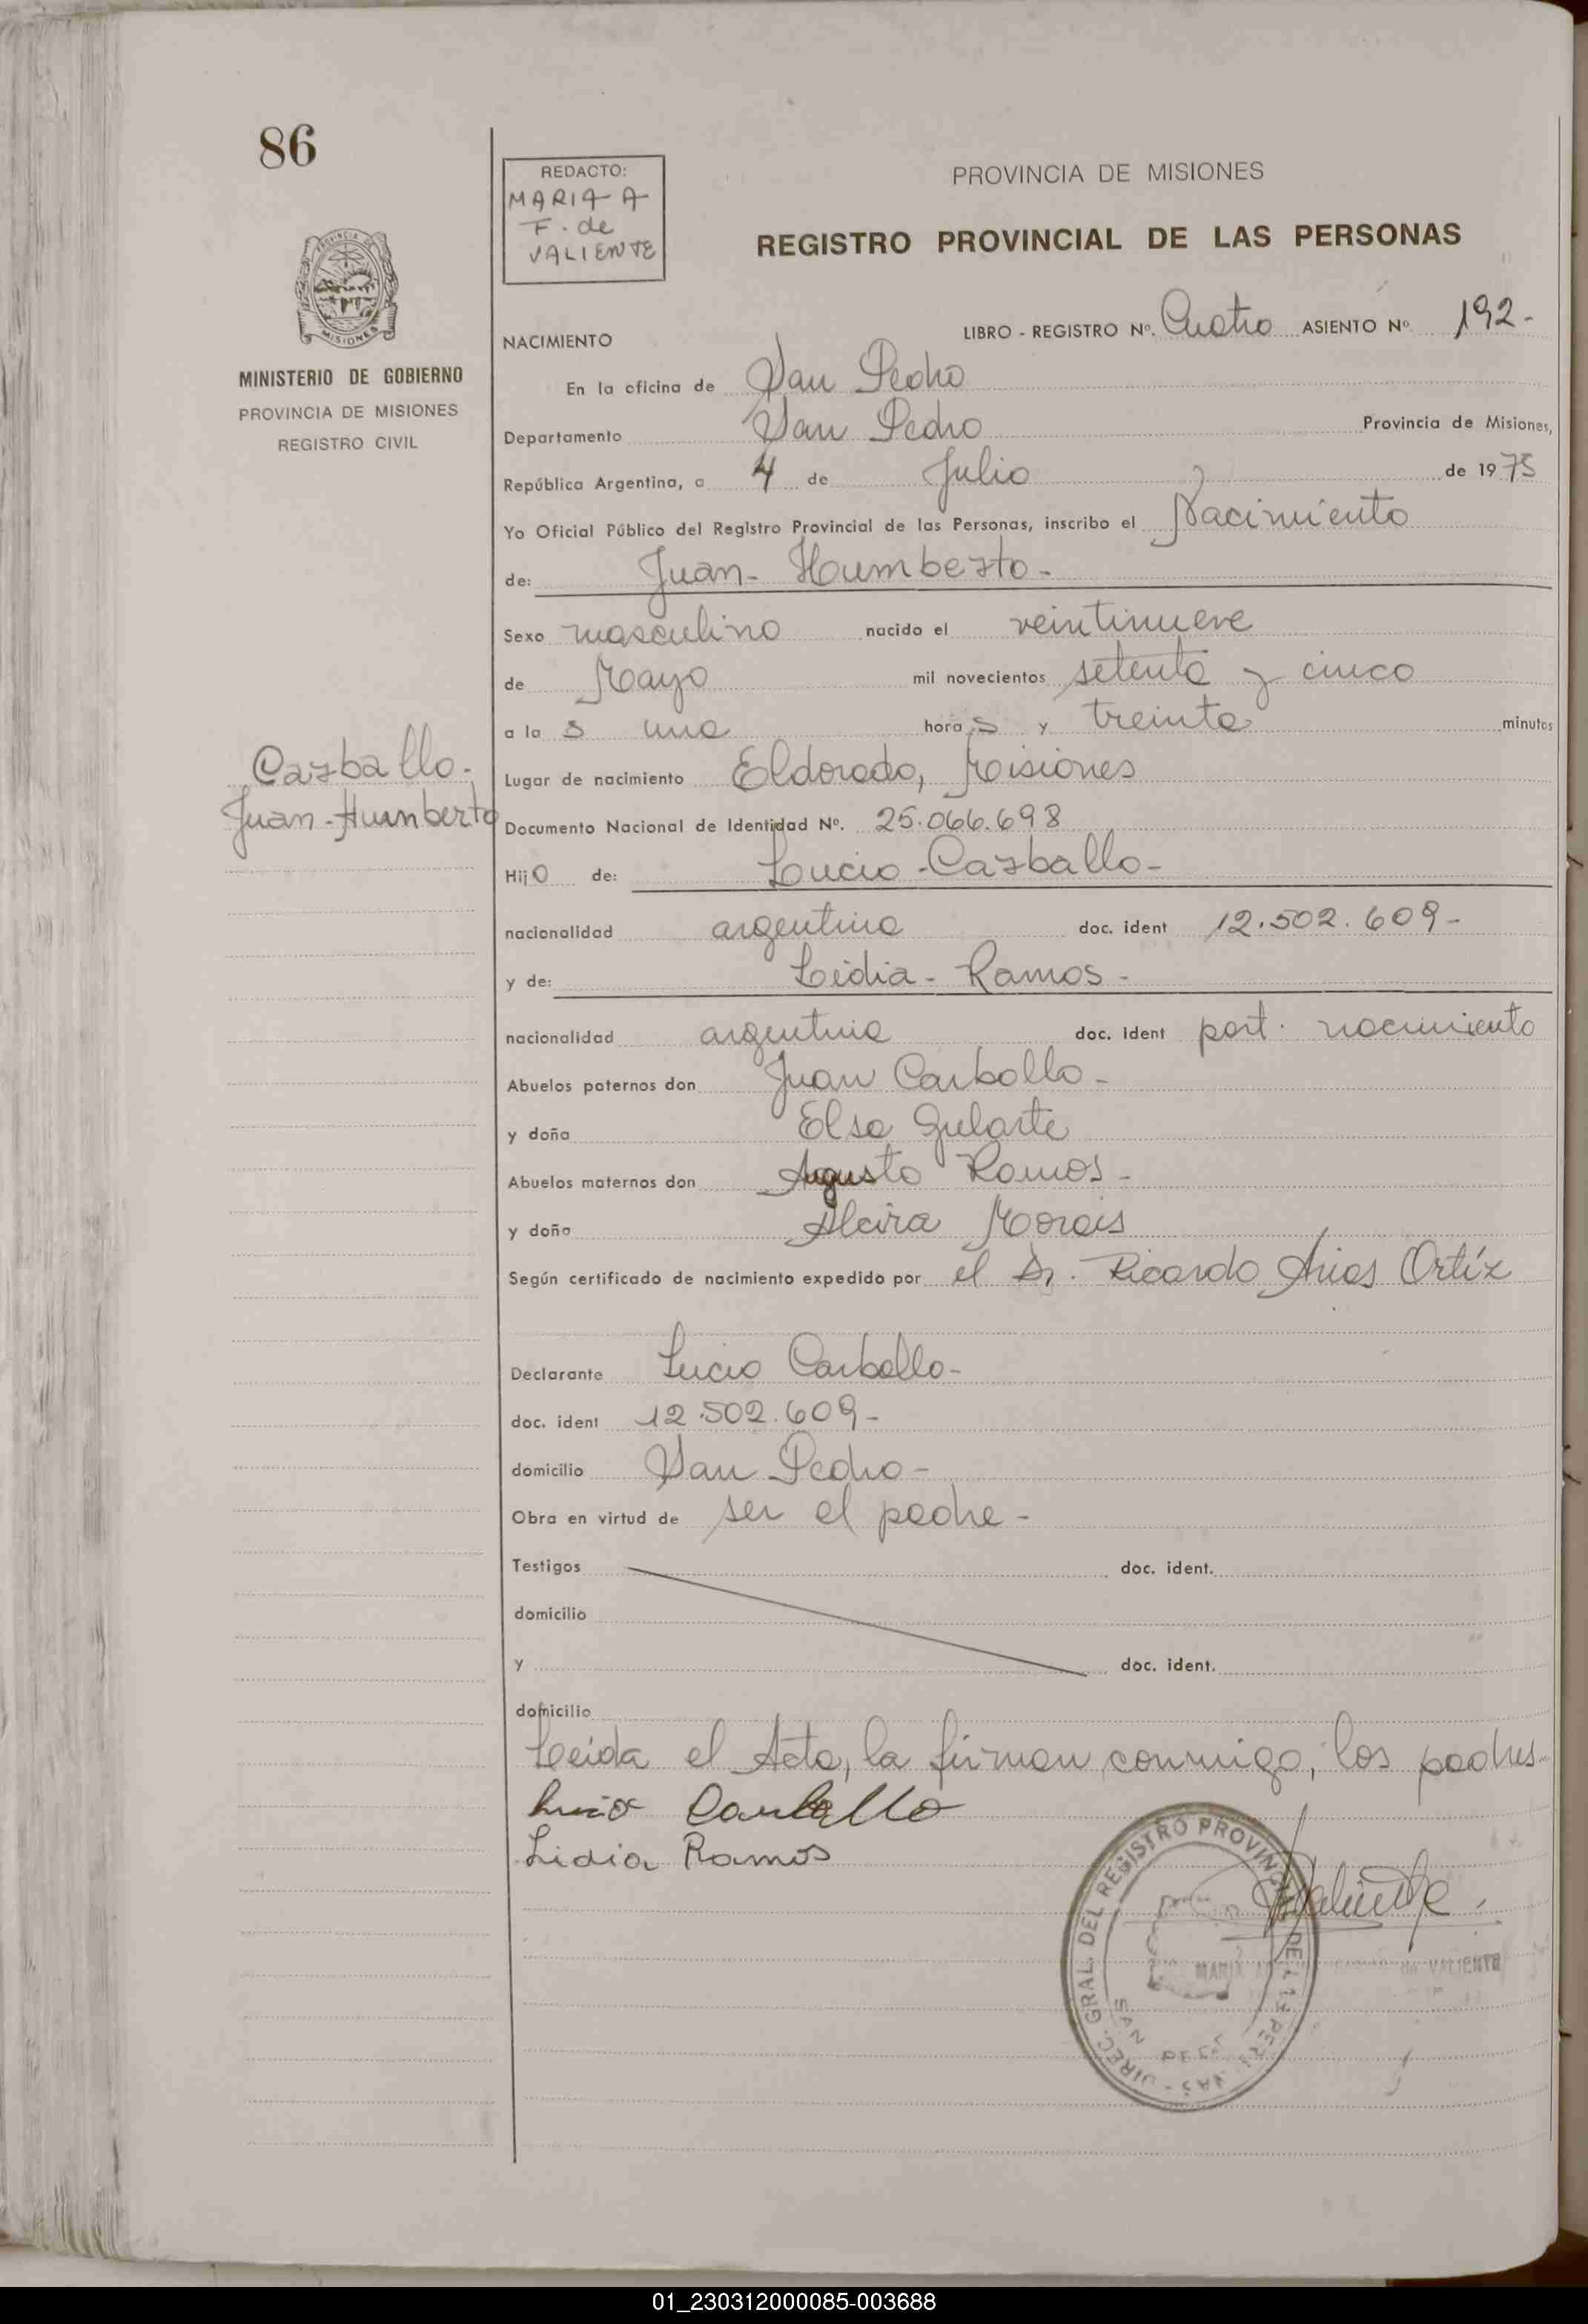 86
REDACTO:
MARIA A
F. de
VALIENTE
PROVINCIA DE MISIONES
REGISTRO PROVINCIAL DE LAS PERSONAS
MINISTERIO DE GOBIERNO
PROVINCIA DE MISIONES
REGISTRO CIVIL
LIBRO - REGISTRO Nº. Cuatro ASIENTO Nº 192-
NACIMIENTO
En la oficina de San Pedro
Departamento San Pedro Provincia de Misiones,
República Argentina, a 4 de Julio de 1975
Yo Oficial Público del Registro Provincial de las Personas, inscribo el Nacimiento
de: Juan- Humberto-
Sexo masculino nacido el veintinueve
de Mayo mil novecientos setenta y cinco
a la s una hora s y treinta minutos
Carballo-
Juan-Humberto
Lugar de nacimiento Eldorado, Misiones
Documento Nacional de Identidad Nº. 25.066.698
Hijo de: Lucio-Carballo-
nacionalidad argentina doc. ident 12.502.609-
y de: Lidia- Ramos-
nacionalidad argentina doc. ident part. nacimiento
Abuelos paternos don Juan Carballo-
y doña Elsa Gularte
Abuelos maternos don Augusto Ramos-
y doña Alcira Morais
Según certificado de nacimiento expedido por el Dr. Ricardo Arias Ortíz
Declarante Lucio Carballo-
doc. ident 12.502.609-
domicilio San Pedro-
Obra en virtud de ser el padre-
Testigos doc. ident.
domicilio
y doc. ident.
domicilio
Leida el Acta, la firman conmigo, los padres-
Lucio Carballo
Lidia Ramos
Valiente
DIREC. GRAL. DEL REGISTRO PROVINCIAL DE LAS PERSONAS
SAN PEDRO
MARIA
de VALIENTE
01_230312000085-003688